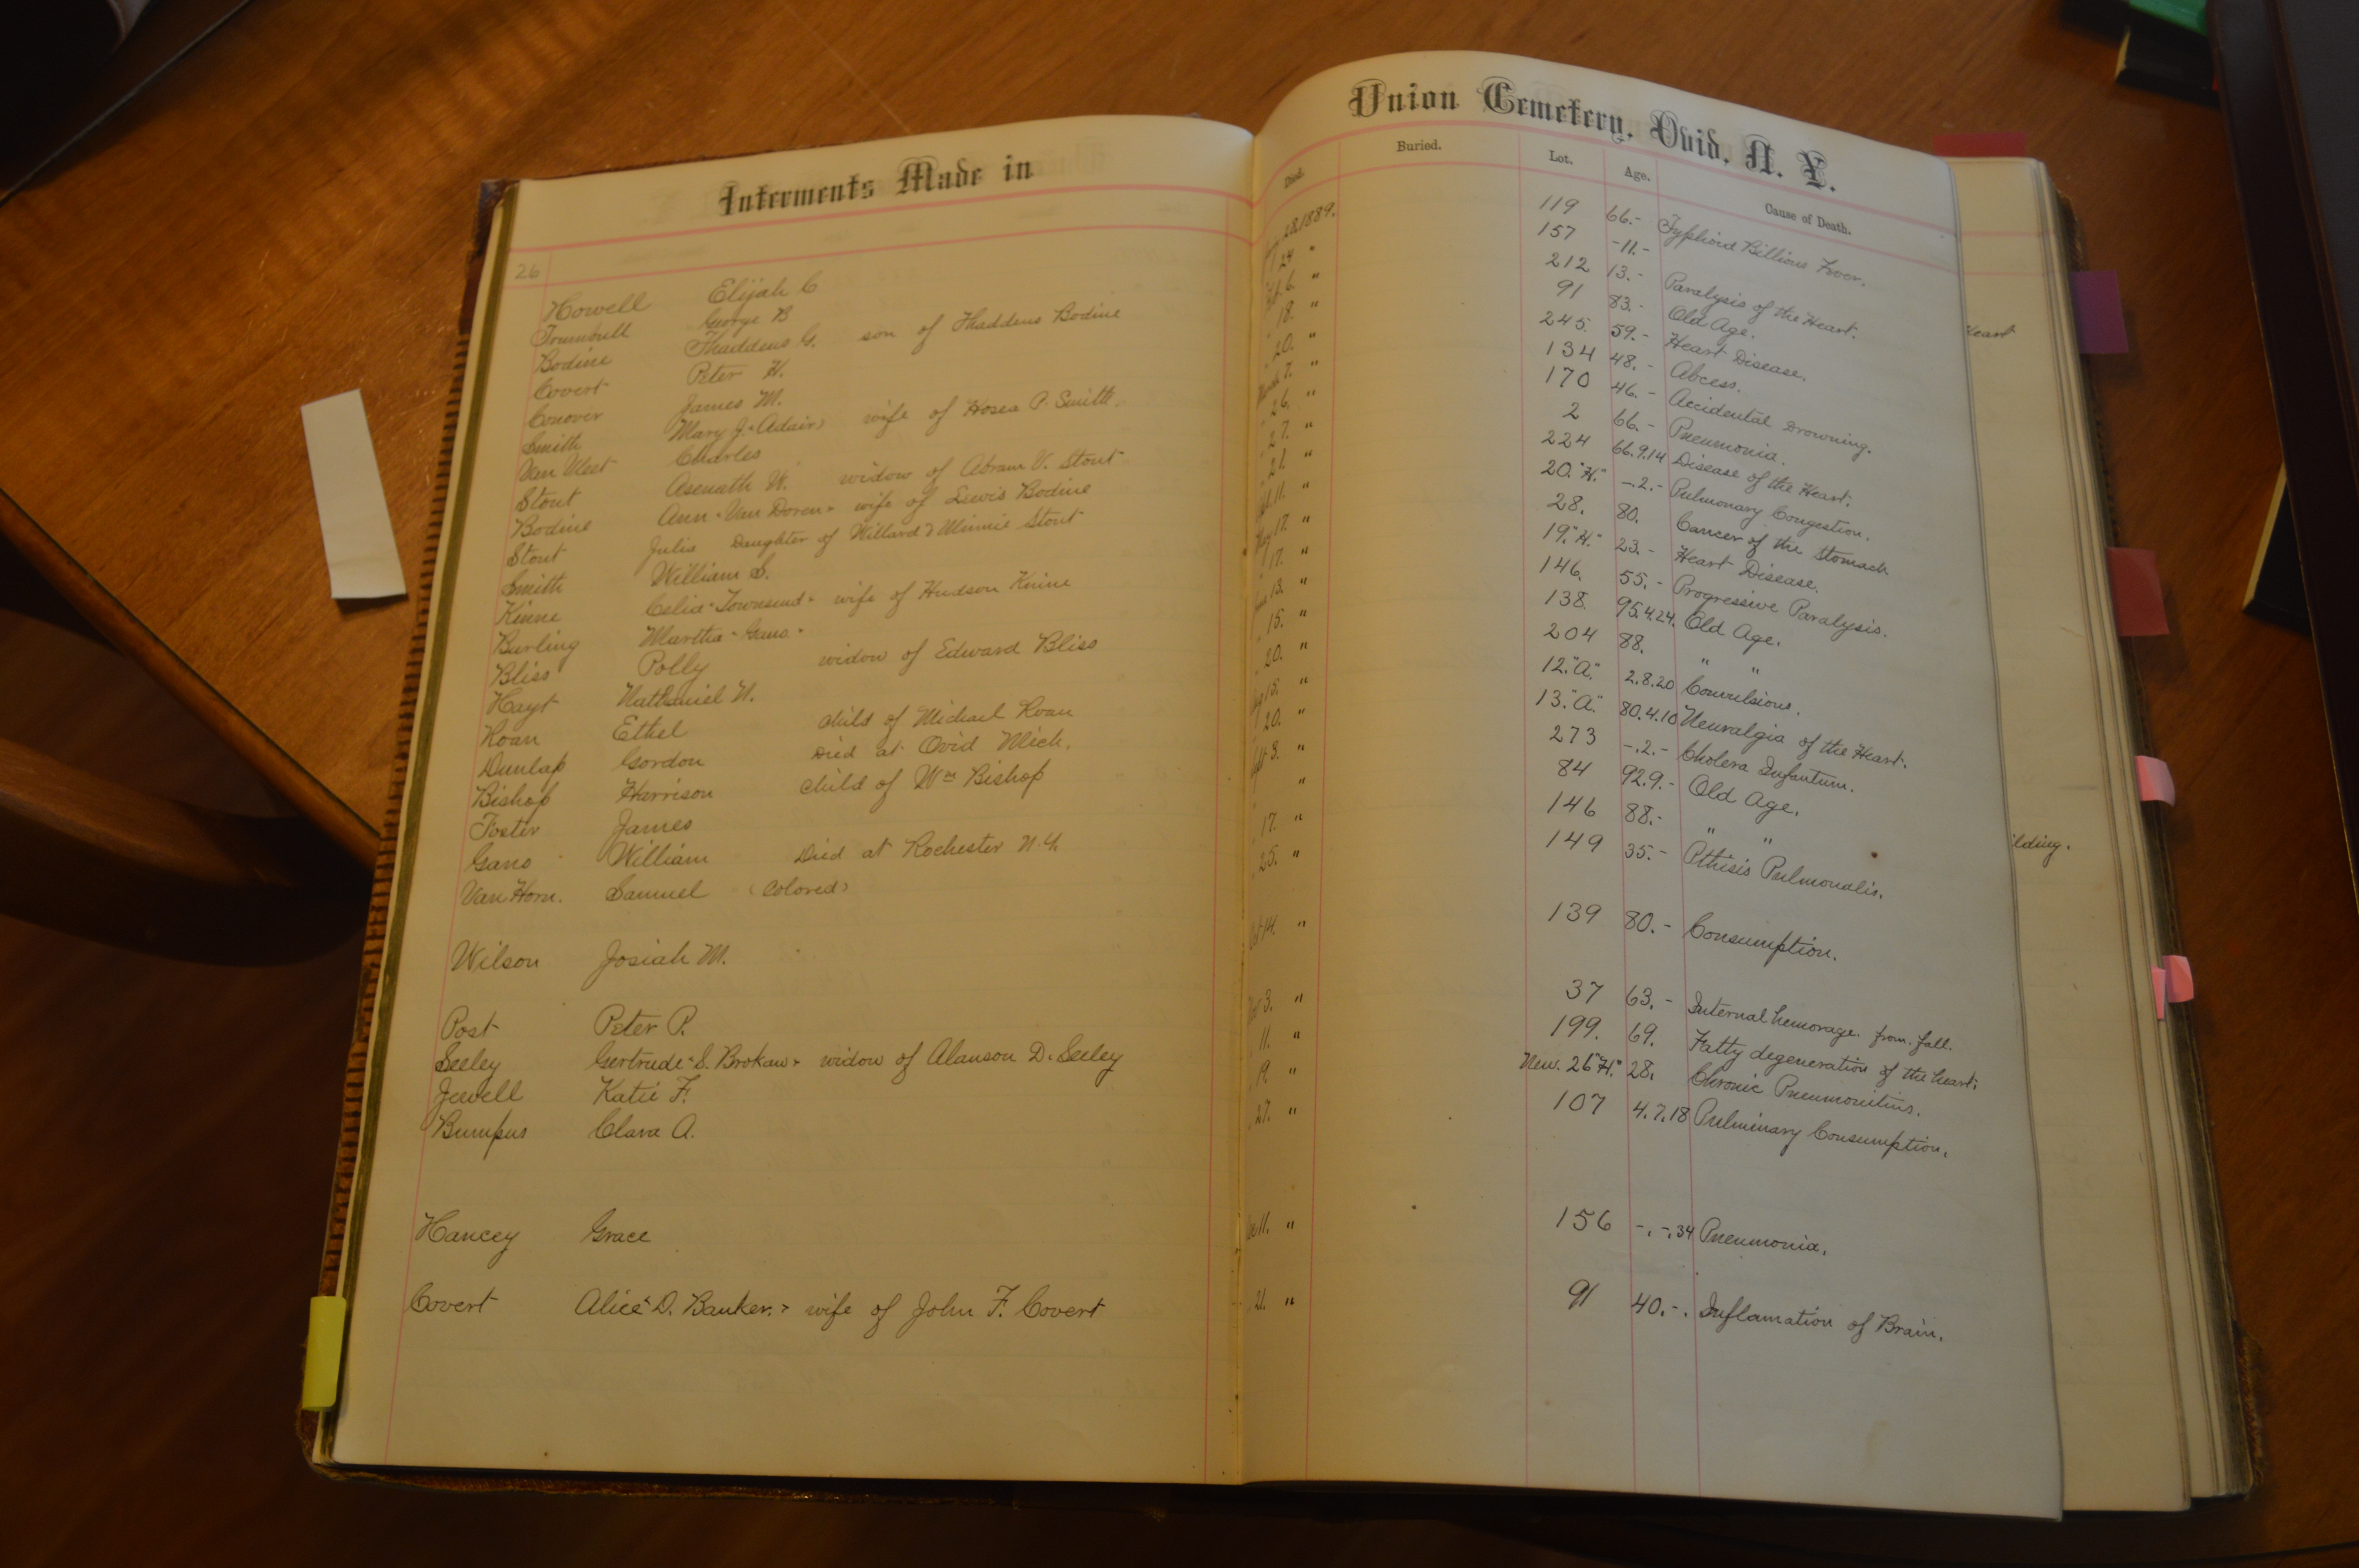 Interments Made in
26
Howell Elijah C
Trumbull George B
Bodine Thaddeus G. son of Thaddeus Bodine
Covert Peter H.
Conover James M.
Smith Mary J. "Adair" wife of Hosea P. Smith.
Van Vleet Charles
Stout Asenath W. widow of Abram V. Stout
Bodine Ann "Van Doren" wife of Lewis Bodine
Stout Julia Daughter of Willard & Minnie Stout
Smith William S.
Kinne Celia "Townsend" wife of Hudson Kinne
Burling Martha "Gano"
Bliss Polly widow of Edward Bliss
Hayt Nathaniel N.
Roan Ethel child of Michael Roan
Dunlap Gordon Died at Ovid Mich.
Bishop Harrison child of Wm Bishop
Foster James
Gano William Died at Rochester N.Y.
Van Horn. Samuel (Colored)
Wilson Josiah M.
Post Peter P.
Seeley Gertrude "S. Brokaw" widow of Alanson D. Seeley
Jewell Katie F.
Bumpus Clara A.
Hancey Grace
Covert Alice "D. Banker." wife of John F. Covert
Union Cemetery, Ovid, N. Y.
Died. Buried. Lot. Age. Cause of Death.
28, 1889. 119 66.- Typhoid Billious Fever.
24 " 157 -11-
6. " 212 13.- Paralysis of the Heart.
18. " 91 83.- Old Age.
20. " 245. 59.- Heart Disease.
March 7. " 134 48.- Abcess.
26. " 170 46.- Accidental Drowning.
27. " 2 66.- Pneumonia.
21. " 224 66.9.14 Disease of the Heart.
11. " 20."H." -.2.- Pulmonary Congestion.
May 17. " 28. 80. Cancer of the Stomach
" 17. " 19."H." 23.- Heart Disease.
June 13. " 146. 55.- Progressive Paralysis.
" 15. " 138. 95.4.24. Old Age.
" 20. " 204 88. " "
Aug 15. " 12."A." 2.8.20 Convulsions.
20. " 13."A." 80.4.10 Neuralgia of the Heart.
Sept 3. " 273 -.2.- Cholera Infantum.
" 84 92.9.- Old Age.
17. " 146 88.- " "
25. " 149 35.- Pthisis Pulmonalis.
Oct 14. " 139 80.- Consumption.
Nov 3. " 37 63.- Internal hemorage. from. fall.
11. " 199. 69. Fatty degeneration of the heart.
19. " New. 26 "H." 28. Chronic Pneumonitius.
27. " 107 4.7.18 Pulminary Consumption.
Dec 11. " 156 -.-.34 Pneumonia.
21. " 91 40.-. Inflamation of Brain.
Heart
ilding.